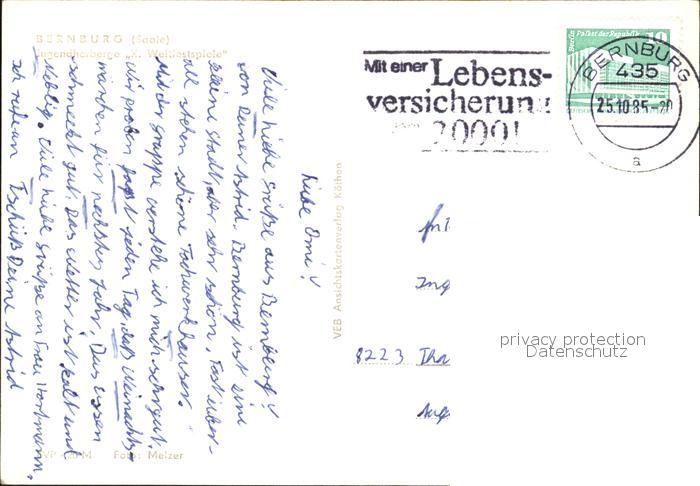 BERNBURG (Saale)
Jugendherberge „X. Weltfestspiele"
Liebe Omi!
Viele liebe Grüße aus Bernburg!
von Deiner Astrid. Bernburg ist eine
kleine Stadt, aber sehr schön. Fast über-
all stehen schöne Fachwerkhäuser.
Mit der Gruppe verstehe ich mich sehr gut.
Wir proben fast jeden Tag, daß Weinachts-
märchen für nächstes Jahr. Das Essen
schmeckt gut. Das Wetter ist kalt und
neblig. Viele liebe Grüße an Frau Hartmann,
Tschüß Deine Astrid
VEB Ansichtskartenverlag Köthen
Foto: Melzer
Mit einer Lebens-
versicherung
2000!
Berlin Palast der Republik
10
BERNBURG
435
25.10.85-20
a
8223 Tha
privacy protection
Datenschutz